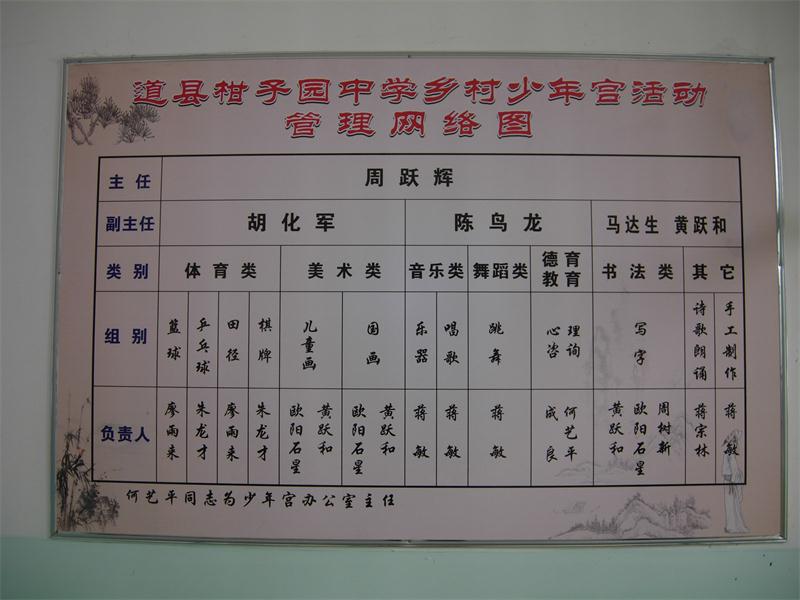 道县柑子园中学乡村少年宫活动
管理网络图
主任 周跃辉
副主任 胡化军 陈鸟龙 马达生 黄跃和
类别 体育类 美术类 音乐类 舞蹈类 德育教育 书法类 其它
组别 篮球 乒乓球 田径 棋牌 儿童画 国画 乐器 唱歌 跳舞 心理咨询 写字 诗歌朗诵 手工制作
负责人 廖雨来 朱龙才 廖雨来 朱龙才 欧阳石星 黄跃和 欧阳石星 黄跃和 蒋敏 蒋敏 蒋敏 成良 何艺平 黄跃和 欧阳石星 周树新 蒋宗林 蒋敏
何艺平同志为少年宫办公室主任